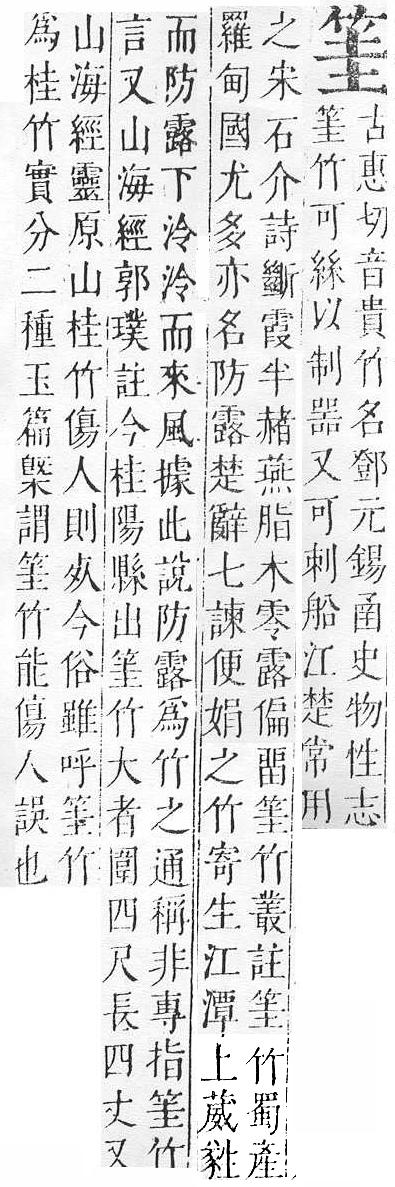 筀
古惠切音貴竹名鄧元錫函史物性志
筀竹可絲以制器又可刺船江楚常用
之宋石介詩斷霞半赭燕脂木零露偏留筀竹叢註筀竹蜀產
羅甸國尤多亦名防露楚辭七諫便娟之竹寄生江潭上葳蕤
而防露下泠泠而來風據此說防露為竹之通稱非專指筀竹
言又山海經郭璞註今桂陽縣出筀竹大者圍四尺長四丈又
山海經靈原山桂竹傷人則死今俗雖呼筀竹
為桂竹實分二種玉篇槩謂筀竹能傷人誤也